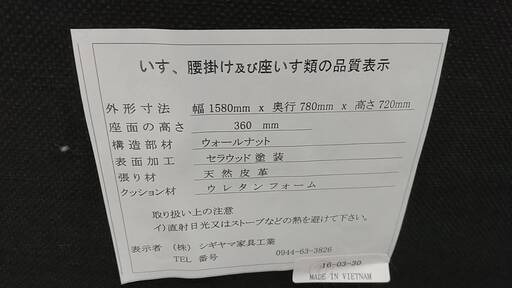 いす、腰掛け及び座いす類の品質表示
外形寸法 幅1580mm x 奥行780mm x 高さ720mm
座面の高さ 360 mm
構造部材 ウォールナット
表面加工 セラウッド塗装
張り材 天然皮革
クッション材 ウレタンフォーム
取り扱い上の注意
イ)直射日光又はストーブなどの熱を避けて下さい。
表示者 (株) シギヤマ家具工業
TEL 番号 0944-63-3826
16-03-30
MADE IN VIETNAM